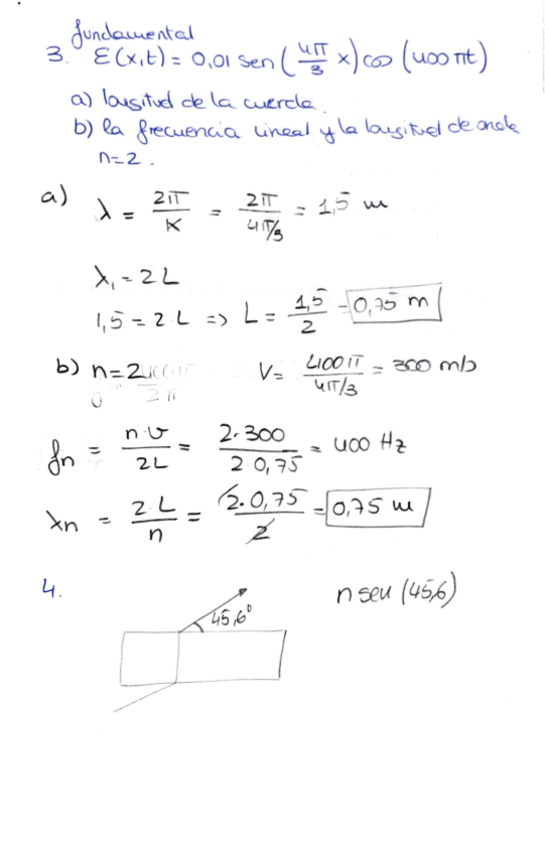 fundamental
3. E(x,t) = 0,01 sen (4π/3 x) cos (400πt)
a) longitud de la cuerda.
b) la frecuencia lineal y la longitud de onda
n=2.
a) λ = 2π/K = 2π/4π/3 = 1,5 m
λ₁ = 2L
1,5 = 2 L => L = 1,5/2 = 0,75 m
b) n=2 V = 400π/4π/3 = 300 m/s
fn = n·v/2L = 2·300/2·0,75 = 400 Hz
λn = 2·L/n = 2·0,75/2 = 0,75 m
4. 45,6° n sen (45,6)